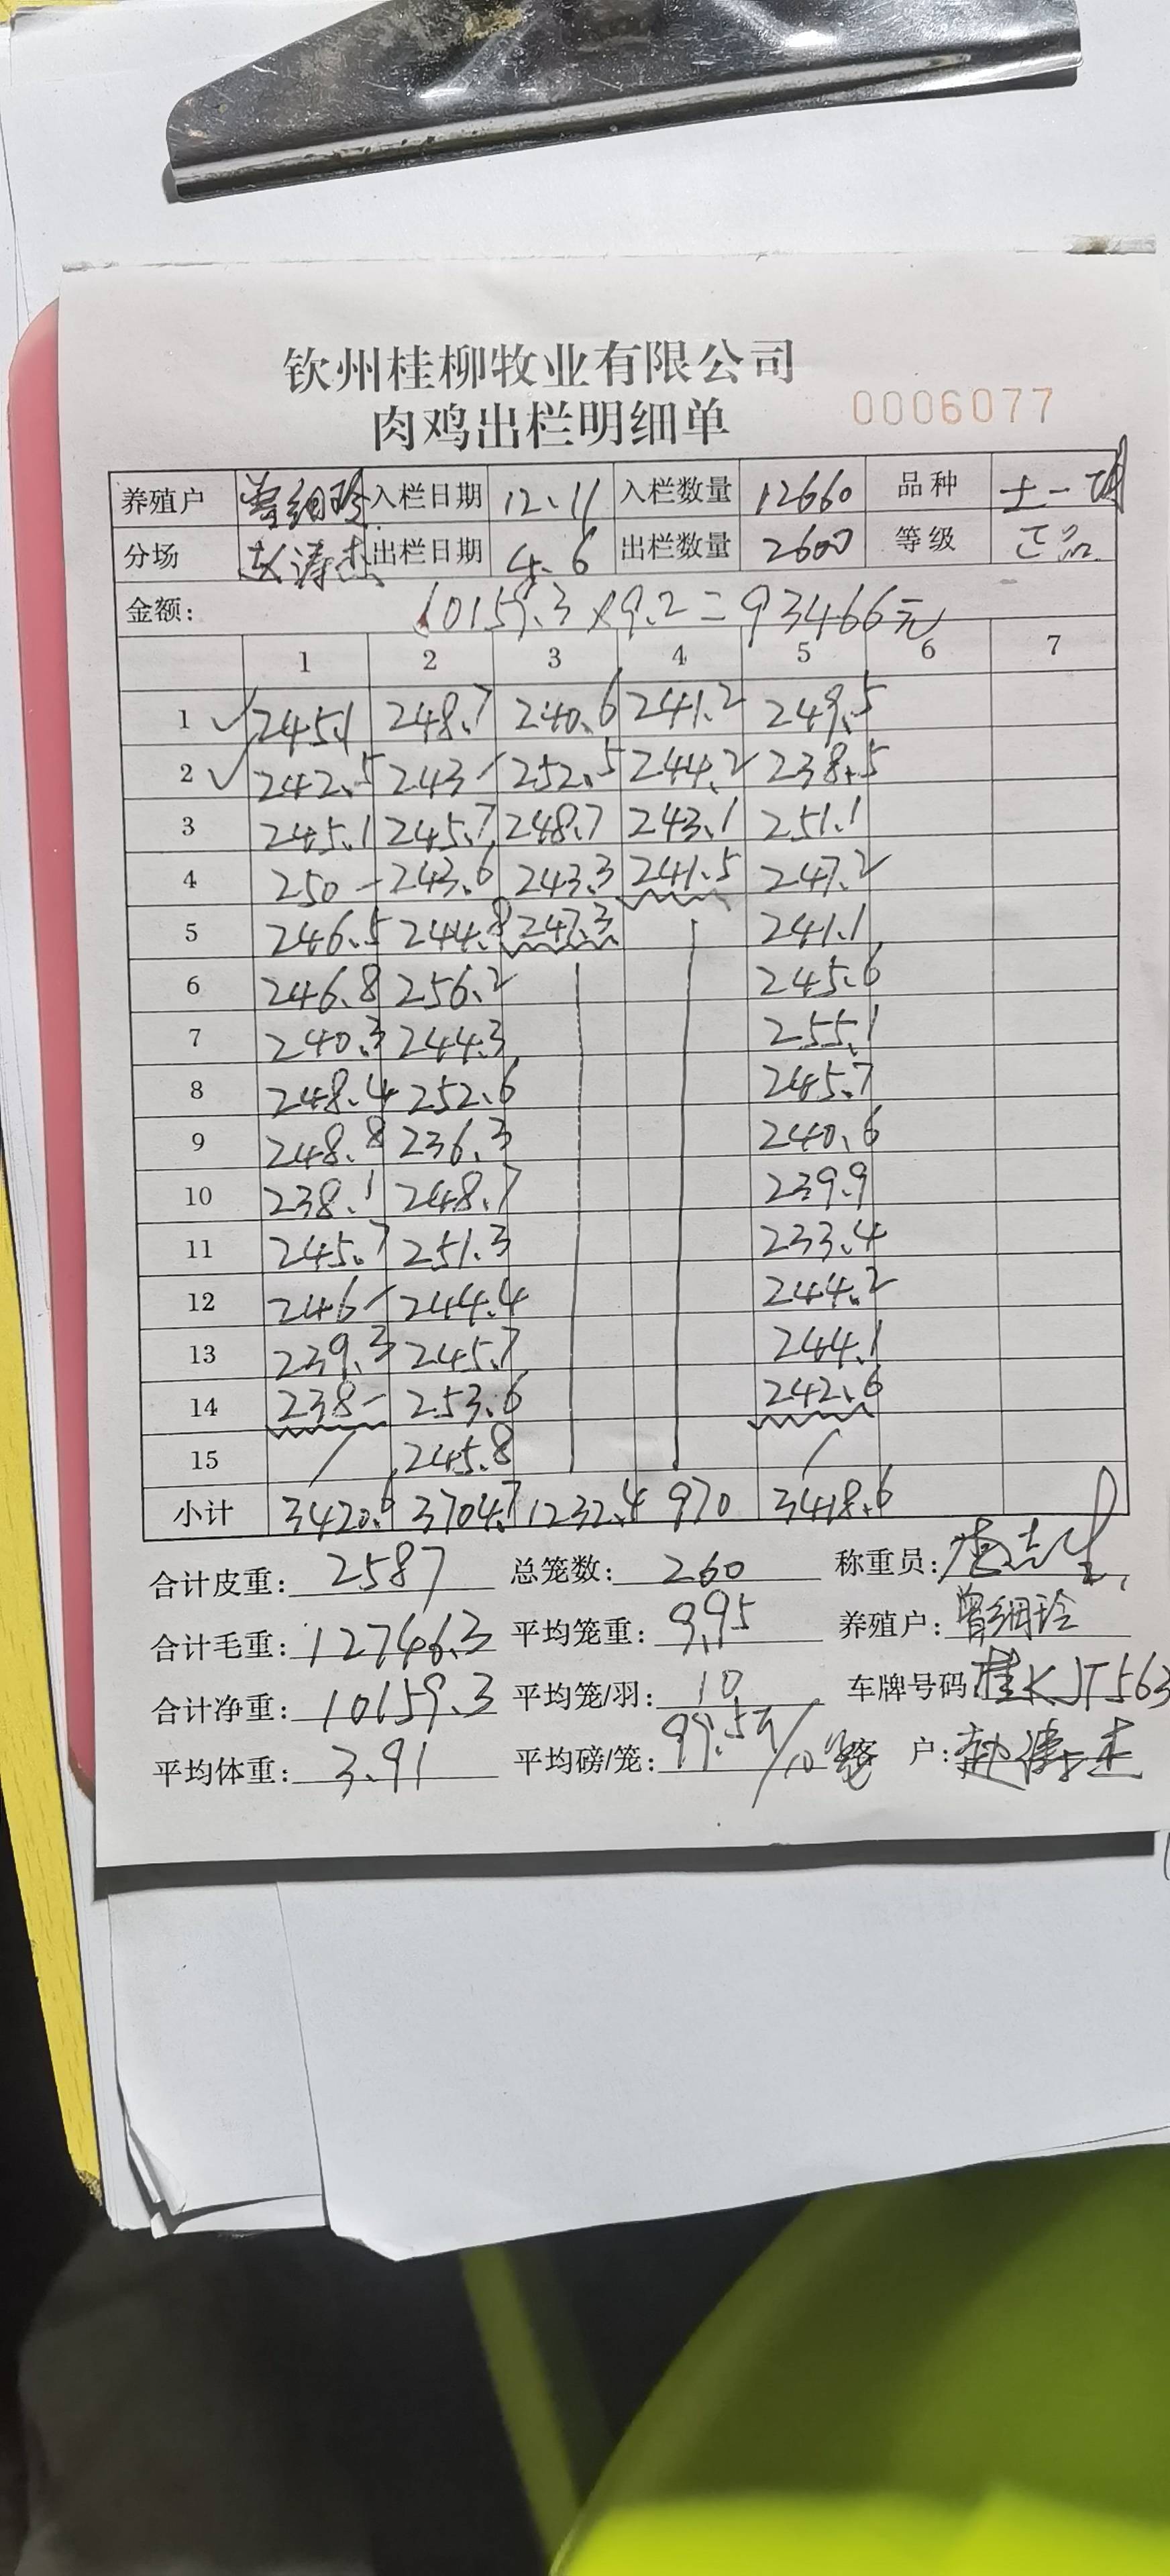 钦州桂柳牧业有限公司
肉鸡出栏明细单 0006077
养殖户 曾细玲 入栏日期 12.11 入栏数量 12660 品种 土一
分场 赵涛杰 出栏日期 4.6 出栏数量 2600 等级 正品
金额: 10159.3×9.2=93466元
1 2 3 4 5 6 7
1 ✓ 245.1 248.7 240.6 241.2 249.5
2 ✓ 242.5 243- 252.5 244.2 238.5
3 245.1 245.7 248.7 243.1 251.1
4 250- 243.6 243.3 241.5 247.2
5 246.5 244.8 247.3 241.1
6 246.8 256.2 245.6
7 240.3 244.3 255.1
8 248.4 252.6 245.7
9 248.8 236.3 240.6
10 238.1 248.7 239.9
11 245.7 251.3 233.4
12 246- 244.4 244.2
13 239.3 245.7 244.1
14 238- 253.6 242.6
15 / 245.8 /
小计 3420.6 3704.7 1232.4 970 3418.6
合计皮重: 2587 总笼数: 260 称重员:
合计毛重: 12746.3 平均笼重: 9.95 养殖户: 曾细玲
合计净重: 10159.3 平均笼/羽: 10 车牌号码: 桂KJT563
平均体重: 3.91 平均磅/笼: 99.5斤/10笼 客户: 赵涛杰